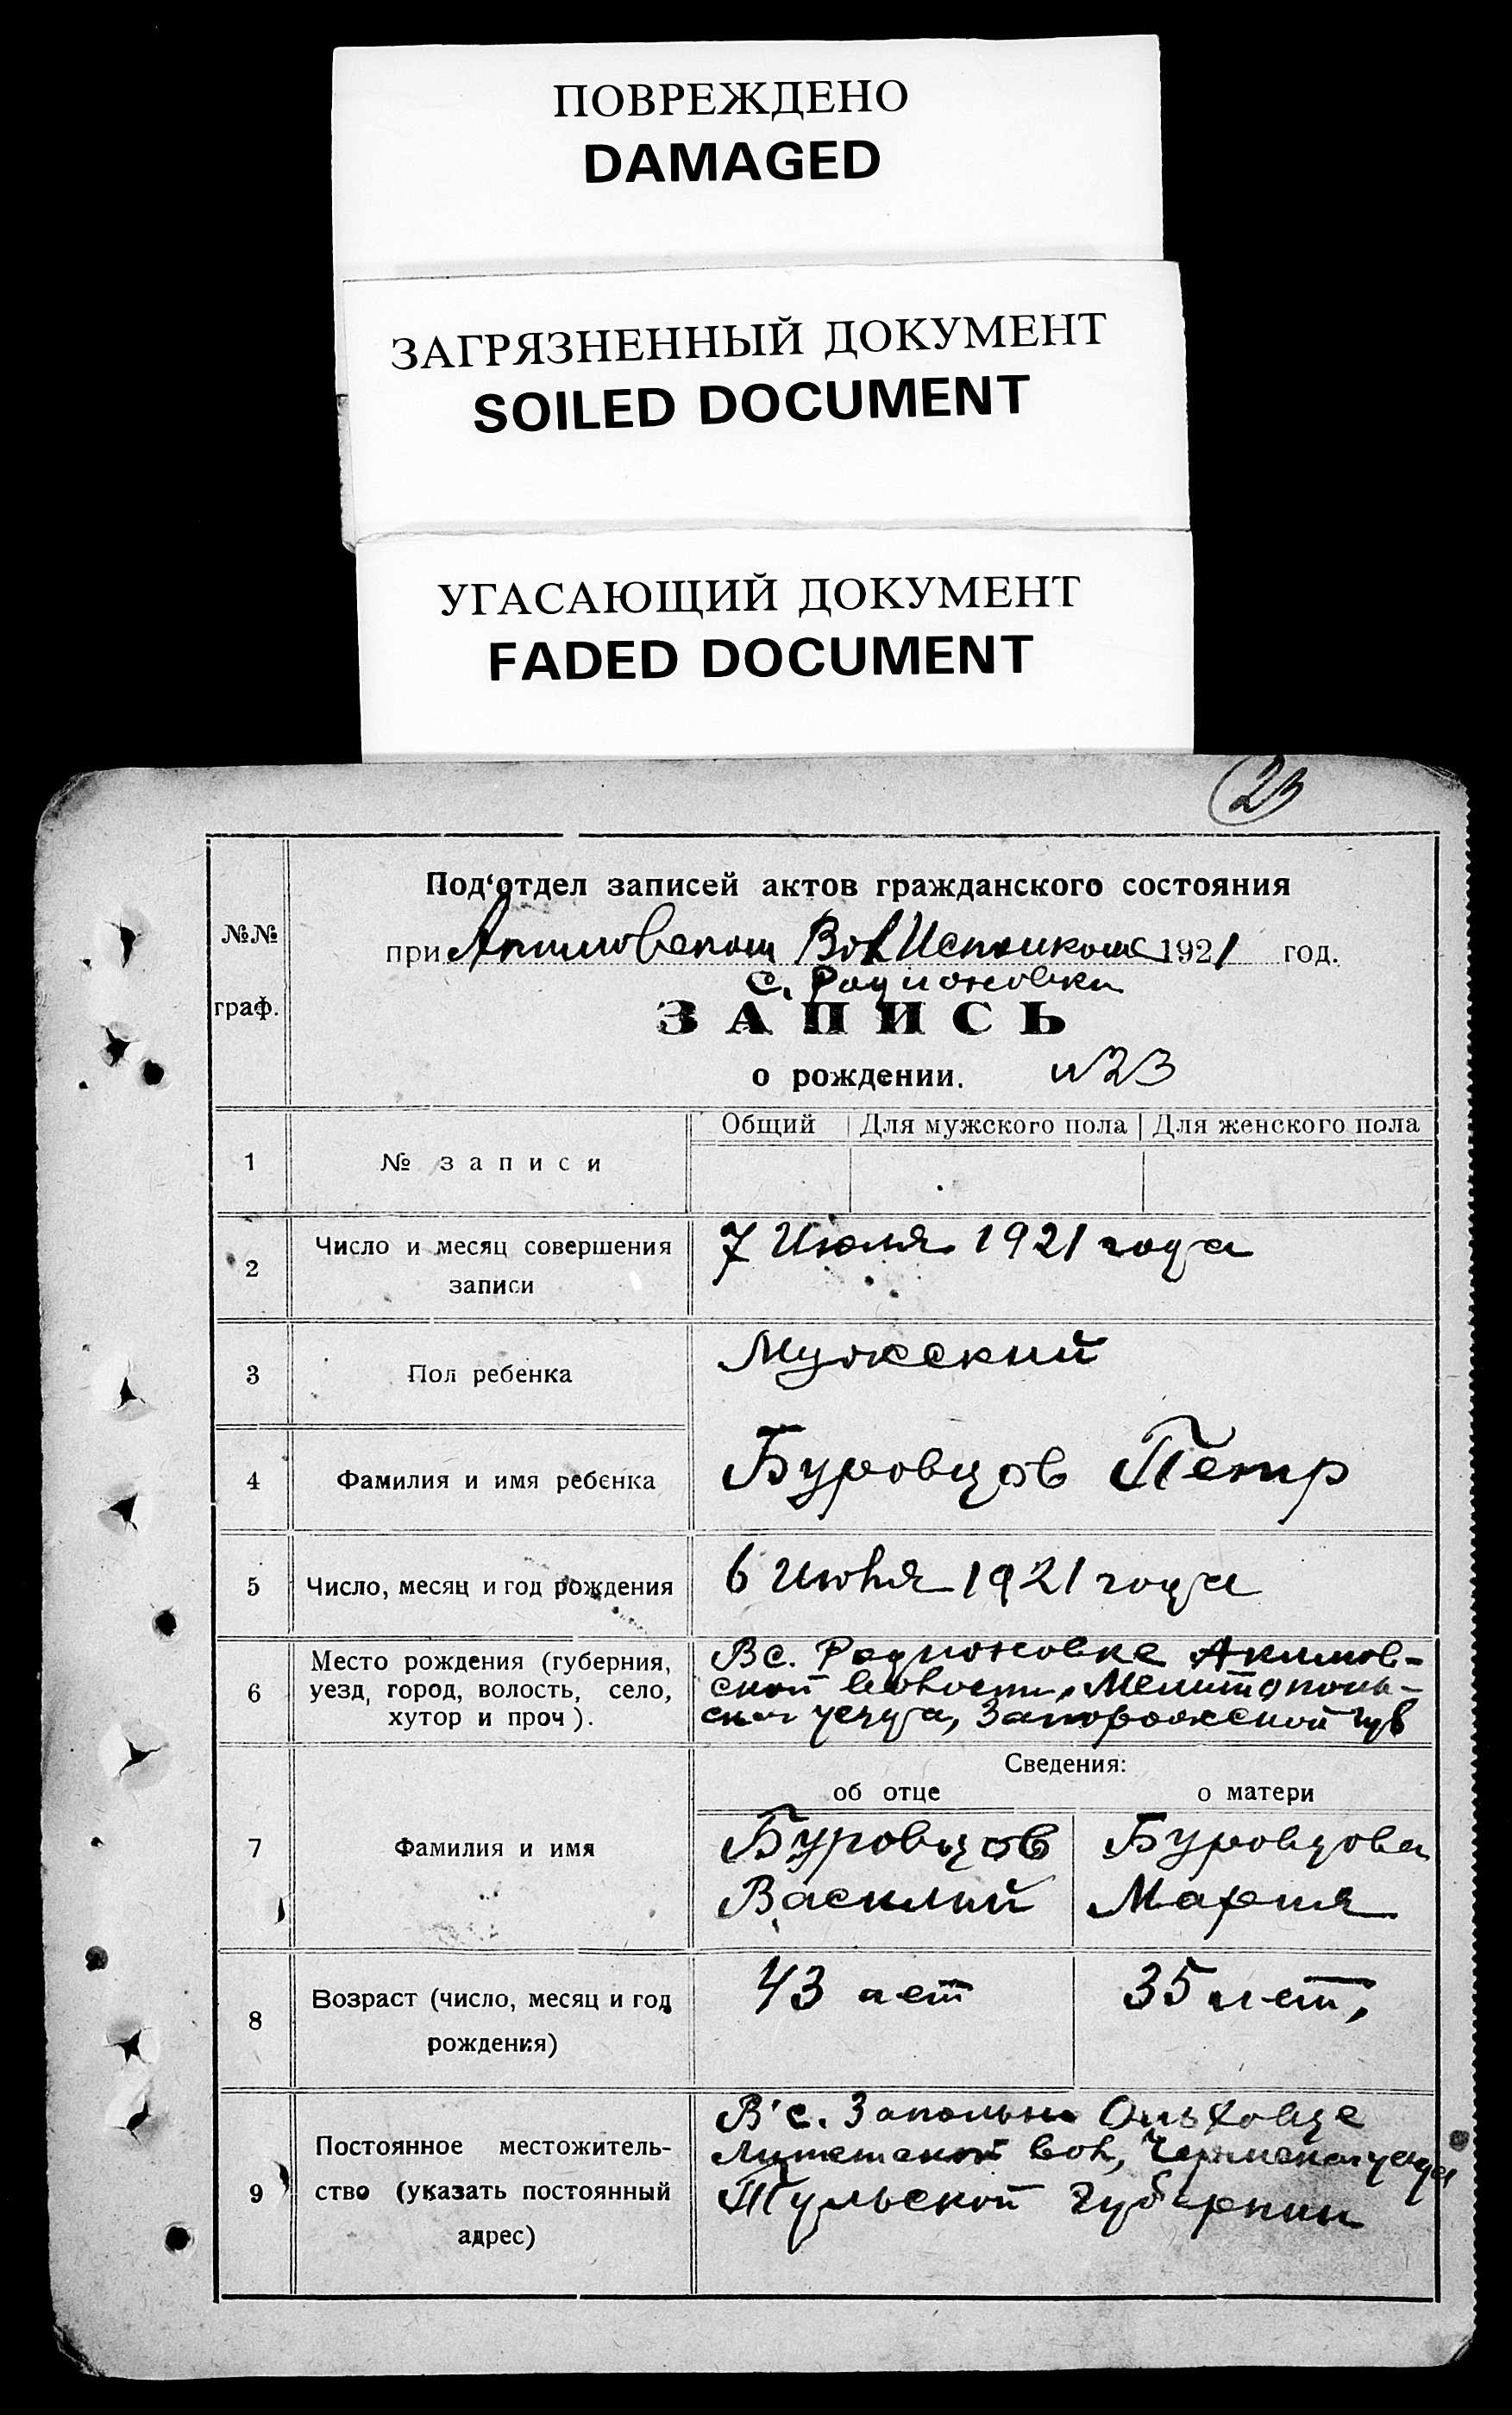 ПОВРЕЖДЕНО
DAMAGED
ЗАГРЯЗНЕННЫЙ ДОКУМЕНТ
SOILED DOCUMENT
УГАСАЮЩИЙ ДОКУМЕНТ
FADED DOCUMENT
23
№№ граф.
Под‘отдел записей актов гражданского состояния
при Акимовском ВолИсполкоме 1921 год.
с. Родионовка
ЗАПИСЬ
о рождении. №23
Общий Для мужского пола Для женского пола
1 № записи
2 Число и месяц совершения записи
7 Июля 1921 года
3 Пол ребенка
Мужеский
4 Фамилия и имя ребенка
Буровцов Петр
5 Число, месяц и год рождения
6 Июля 1921 года
6 Место рождения (губерния,
уезд, город, волость, село,
хутор и проч).
В с. Родионовке Акимов-
ской волости, Мелитополь-
ского уезда, Запорожской губ
Сведения:
об отце о матери
7 Фамилия и имя
Буровцов Буровцова
Василий Мария
8 Возраст (число, месяц и год
рождения)
43 лет 35 лет,
9 Постоянное местожитель-
ство (указать постоянный
адрес)
В с. Ольховце
вол, уезда
Тульской Губернии